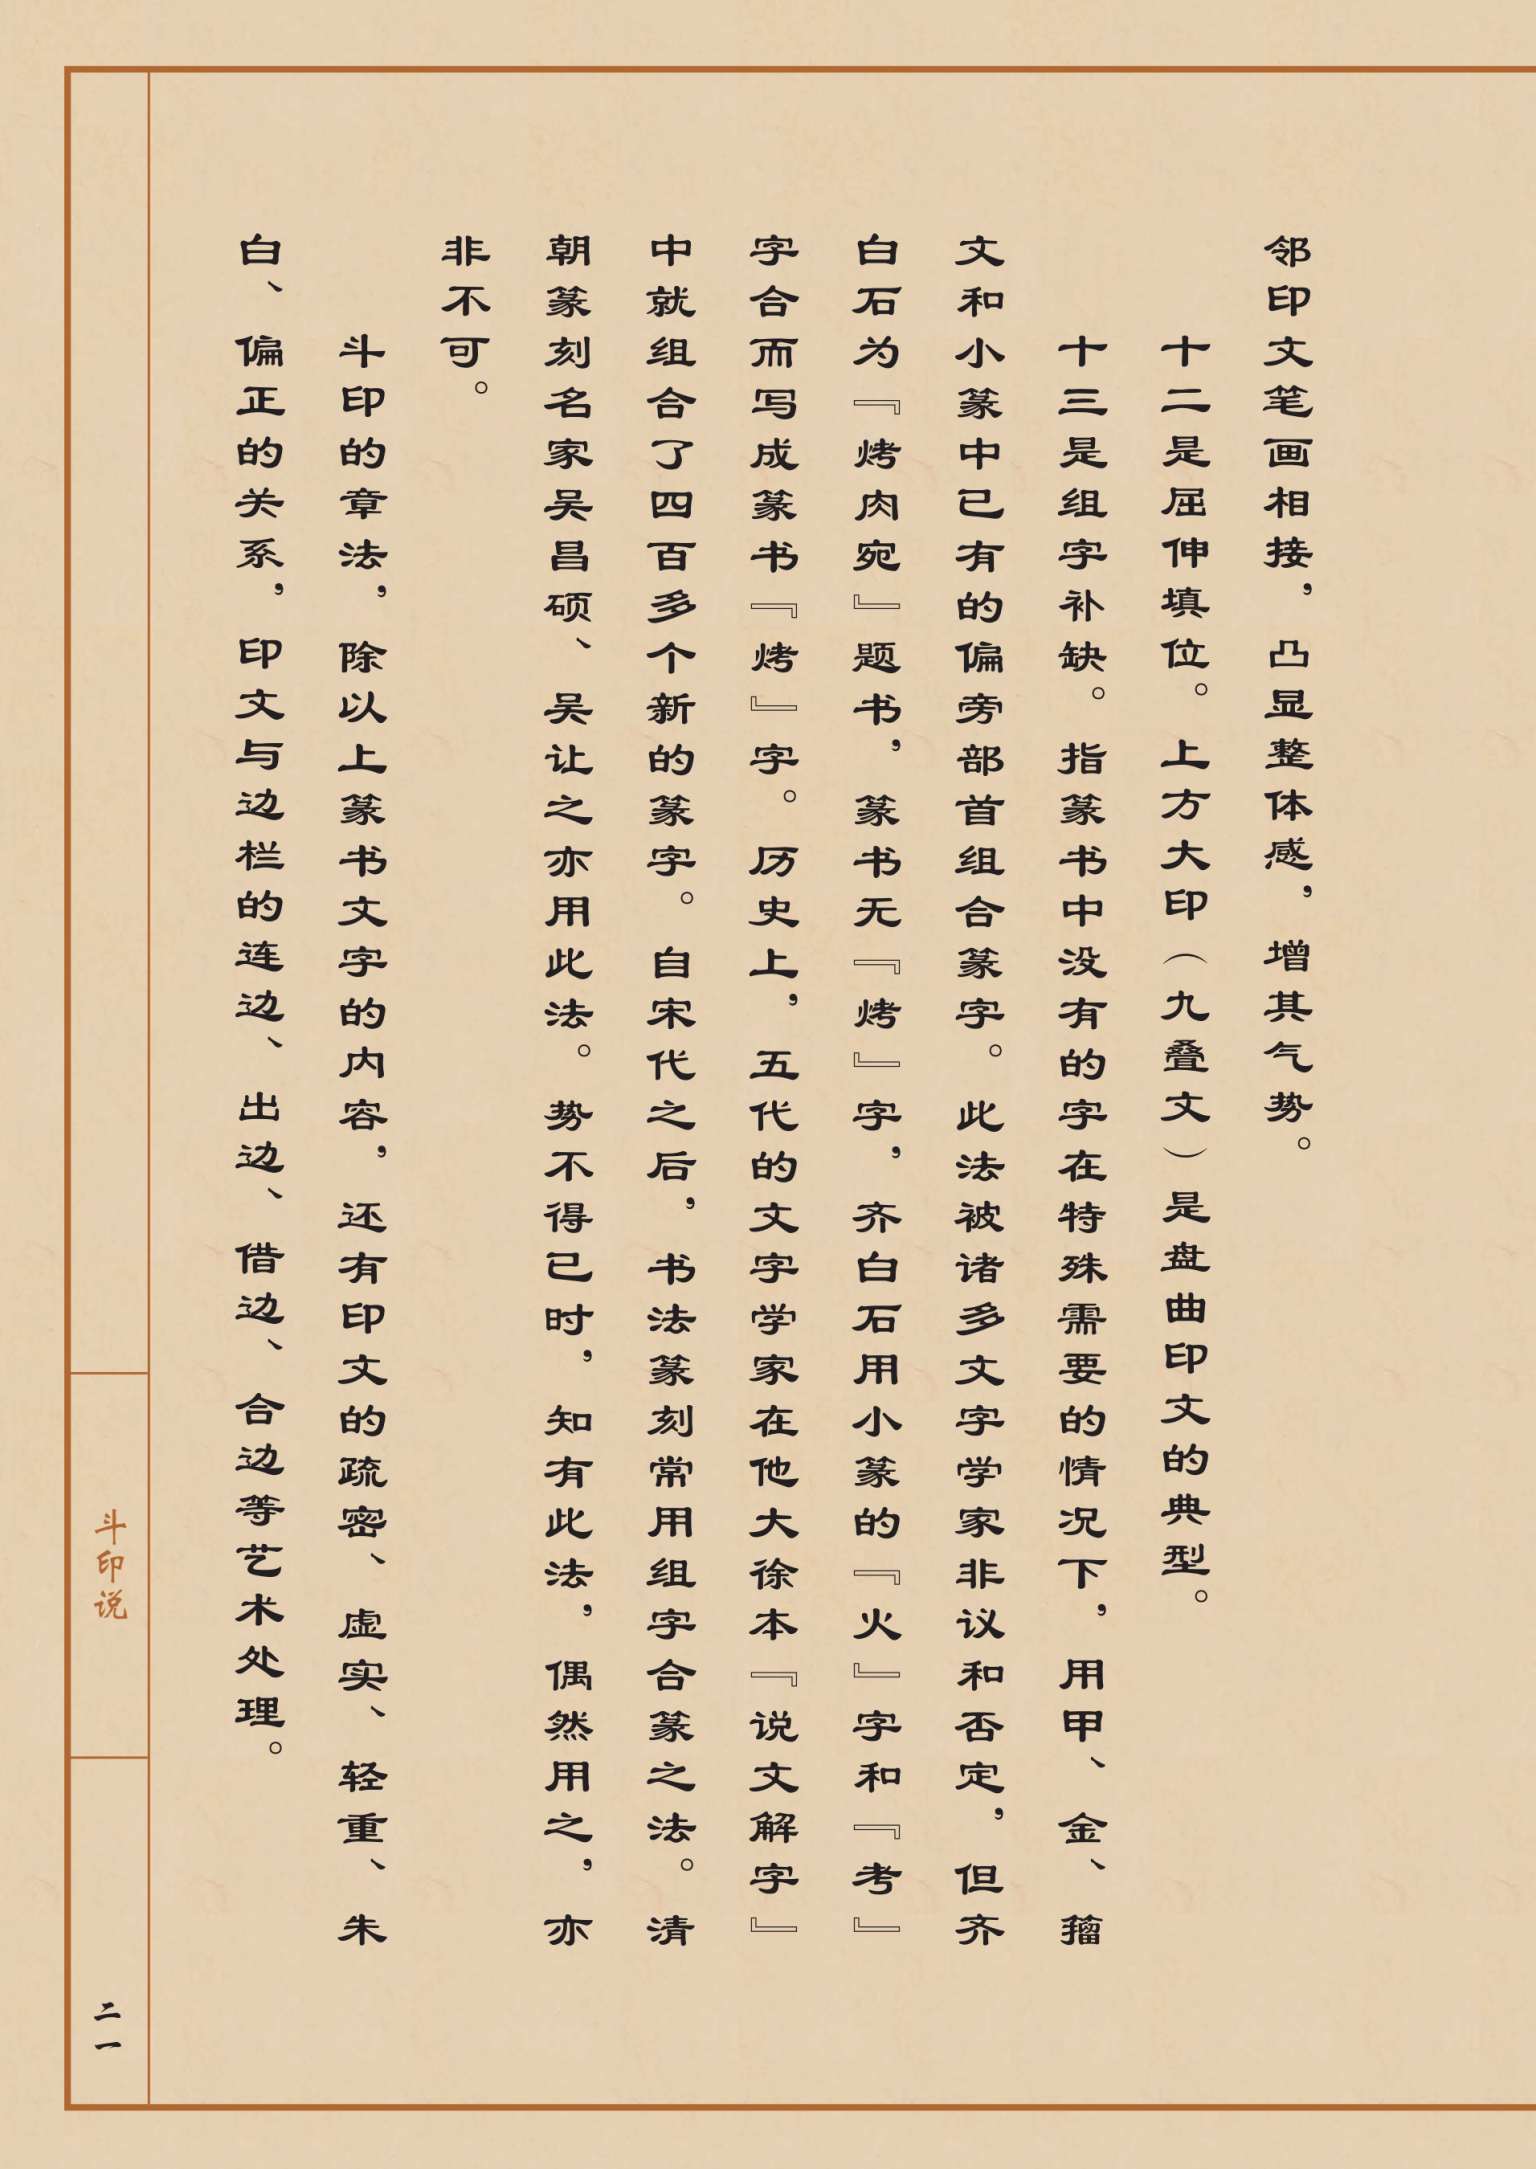 邻印文笔画相接，凸显整体感，增其气势。
十二是屈伸填位。上方大印（九叠文）是盘曲印文的典型。
十三是组字补缺。指篆书中没有的字在特殊需要的情况下，用甲、金、籀
文和小篆中已有的偏旁部首组合篆字。此法被诸多文字学家非议和否定，但齐
白石为『烤肉宛』题书，篆书无『烤』字，齐白石用小篆的『火』字和『考』
字合而写成篆书『烤』字。历史上，五代的文字学家在他大徐本『说文解字』
中就组合了四百多个新的篆字。自宋代之后，书法篆刻常用组字合篆之法。清
朝篆刻名家吴昌硕、吴让之亦用此法。势不得已时，知有此法，偶然用之，亦
非不可。
斗印的章法，除以上篆书文字的内容，还有印文的疏密、虚实、轻重、朱
白、偏正的关系，印文与边栏的连边、出边、借边、合边等艺术处理。
斗印说
二一